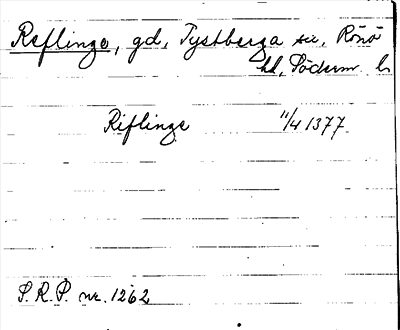 Reflinge, gd, Tystberga sn, Rönö
hd, Söderm. l.
Riflinge 11/4 1377.
S.R.P. nr. 1262